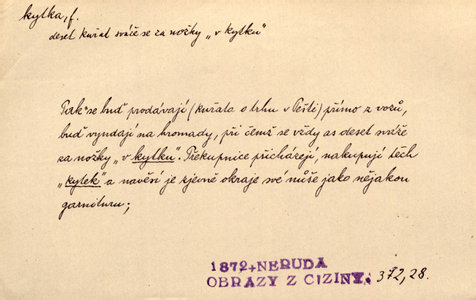 kytka, f.
deset kuřat sváže se za nožky „v kytku"
Pak se buď prodávají (kuřata o trhu v Pešti) přímo z vozů,
buď vyndají na hromady, při čemž se vždy as deset sváže
za nožky „v kytku". Překupnice přicházejí, nakupují těch
„kytek" a navěsí je zjevně okraje své nůše jako nějakou
garnituru;
1872+NERUDA
OBRAZY Z CIZINY. 372,28.